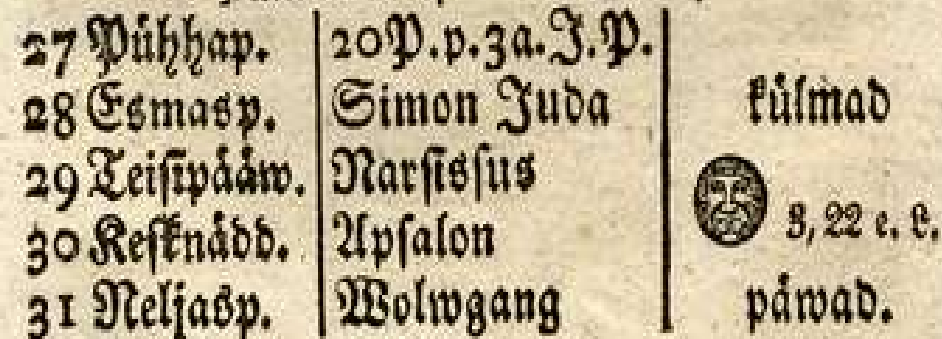 27 Pühhap. 20 P. p. 3a. J. P.
28 Esmasp. Simon Juda külmad
29 Teisipääw. Narsissus
30 Kesknädd. Apsalon 3, 22 e. L.
31 Neljasp. Wolwgang päwad.